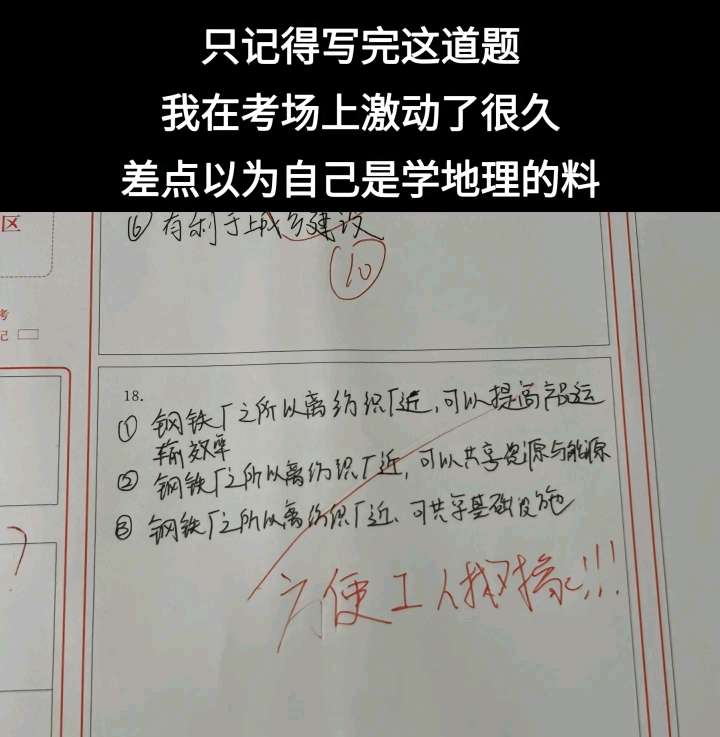 只记得写完这道题
我在考场上激动了很久
差点以为自己是学地理的料
区
⑥有利于城乡建设
10
考
记
18.
①钢铁厂之所以离纺织厂近,可以提高运
输效率
②钢铁厂之所以离纺织厂近,可以共享资源与能源
③钢铁厂之所以离纺织厂近、可共享基础设施
方便工人找对象!!!